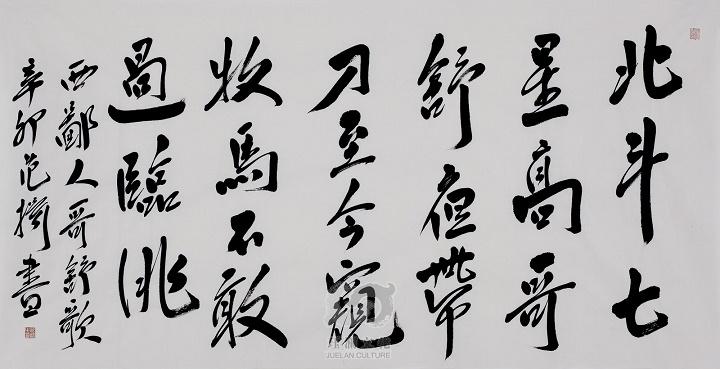 北斗七
星高哥
舒夜帶
刀至今窺
牧馬不敢
過臨洮
西鄙人哥舒歌
辛卯范揚書
JUELAN CULTURE